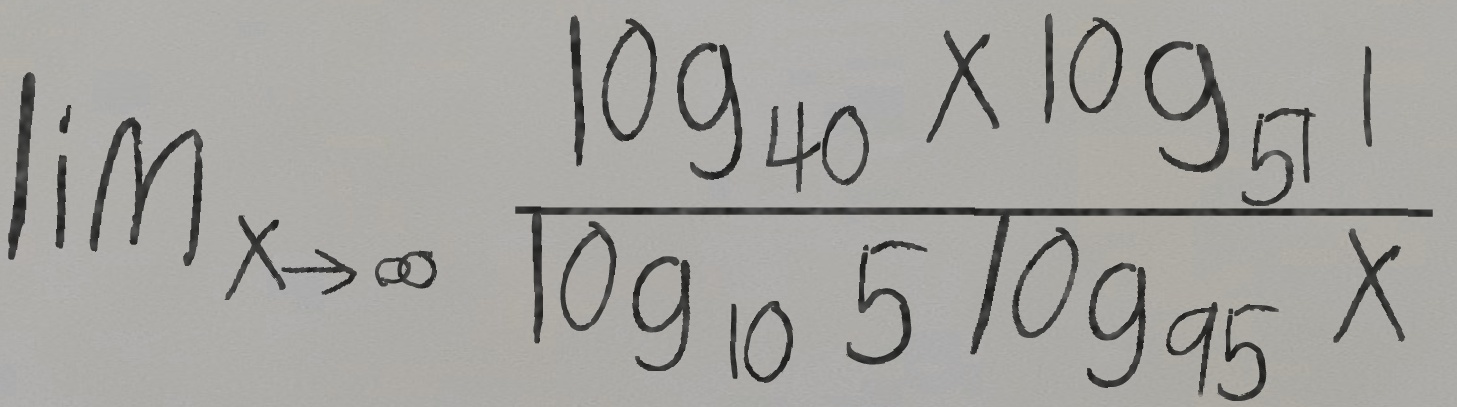 lim x→∞ log₄₀ x log₅₁ 1 / log₁₀ 5 log₉₅ x